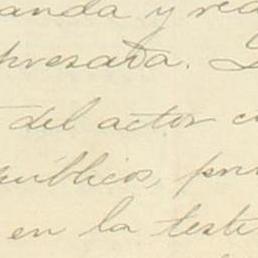 anda y rea
presada.
del actor c
públicos, pr
en la test